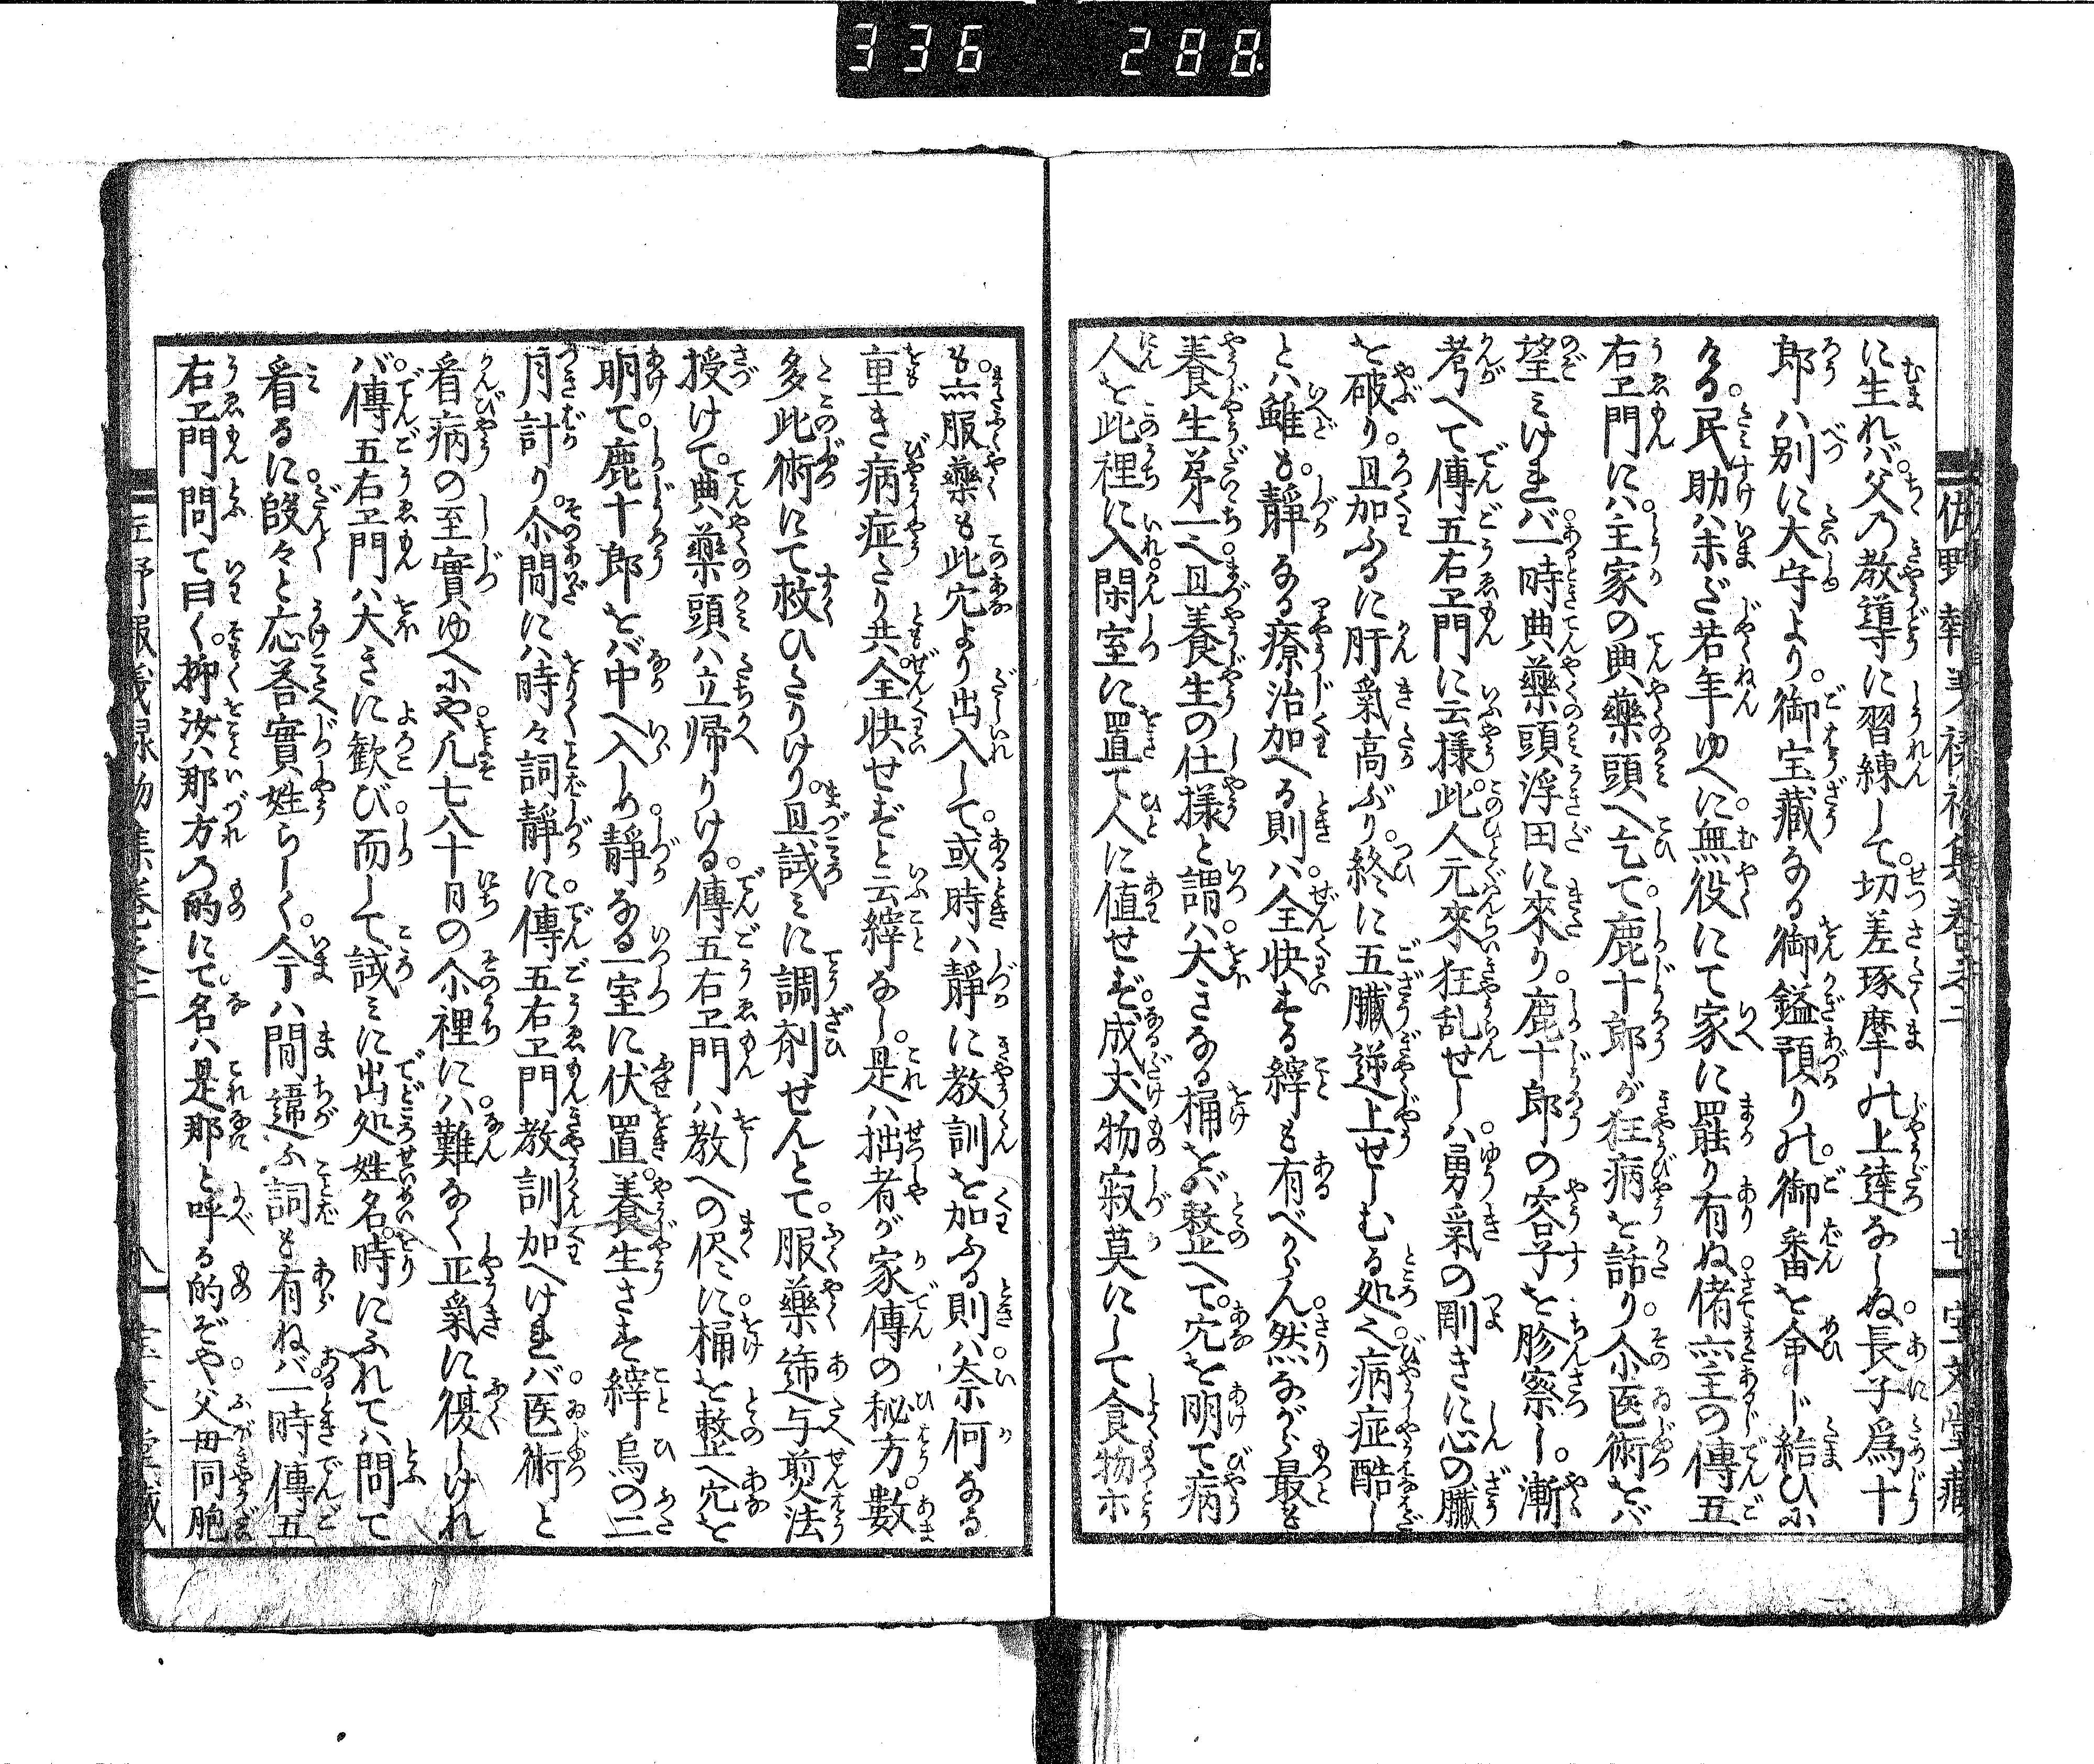 336 288.
に生れバ。父乃教導に習練して。切差琢摩の上達なしぬ。長子爲十
郎ハ別に大守より。御宝蔵なる御鎰預りの。御番を命ド給ひふ
ける。民助ハ未ざ若年ゆへに。無役にて家に罷り有ぬ。偖亦主の傳五
右衛門にハ。主家の典藥頭へ乞て。鹿十郎が狂病を語り。尒医術をバ
望ミけれバ。一時典藥頭浮田に來り。鹿十郎の容子を胗察し。漸
考へて傳五右衛門に云様。此人元來狂乱せしハ。勇氣の剛きに心の臓
を破り。且加ふるに肝氣高ぶり。終に五臓逆上せしむる処也。病症酷し
とハ雖も。靜なる療治加へる則ハ。全快する縡も有べからん。然ながら最も
養生苐一也。且養生の仕様と謂ハ。大きなる桶をバ整へて。穴を明て病
人を此裡に入。閑室に置て人に値せず。成丈物寂莫にして食物ホ
も。亦服藥も此穴より出入して。或時ハ靜に教訓を加ふる則ハ。奈何なる
重き病症たり共。全快せずと云縡なし。是ハ拙者が家傳の秘方。數
多此術にて救ひたりけり。且試ミに調剤せんとて。服藥迯与煎法
授けて。典藥頭ハ立帰りける。傳五右衛門ハ教への侭に。桶を整へ穴を
明て。鹿十郎をバ中へ入しめ。靜なる一室に伏置。養生さする縡烏の二
月計り。尒間にハ時々詞靜に。傳五右衛門教訓加へけれバ。医術と
看病の至實ゆへふや。凡七八十日の尒裡にハ。難なく正氣に復しけれ
バ。傳五右衛門ハ大きに歓び。而して試ミに出処姓名。時にふれてハ問て
看るに。段々と応荅實姓らしく。今ハ間違ふ詞も有ねバ。一時傳五
右衛門問て曰く。抑汝ハ那方乃的にて。名ハ是那と呼る的ぞや。父母同胞